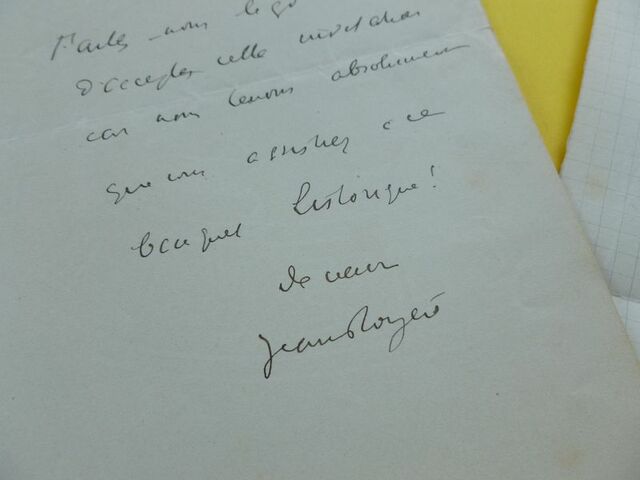 Faites-nous le
d'accepter cette invitation
car nous tenons absolument
que vous assistiez à ce
banquet historique!
de cœur
Jean Royère